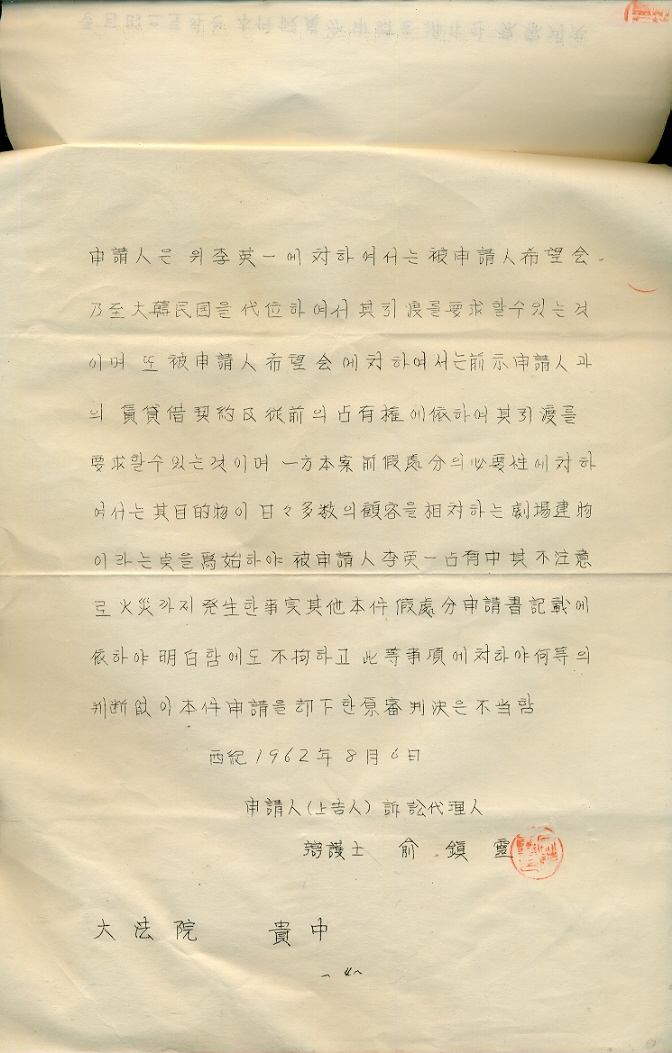 申請人은 위李英一에対하여서는被申請人希望会
乃至大韓民国을代位하여서其引渡를要求할수있는것
이며 또被申請人希望会에対하여서는前示申請人과
의 賃貸借契約及従前의占有権에依하여其引渡를
要求할수있는것이며 一方本案前假處分의必要性에対하
여서는其目的物이日々多数의顧客을相対하는劇場建物
이라는点을為始하야被申請人李英一占有中其不注意
로火災까지発生한事実其他本件假處分申請書記載에
依하야明白함에도不拘하고此等事項에対하야何等의
判断없이本件申請을却下한原審判決은不当함
西紀1962年8月6日
申請人(上告人)訴訟代理人
辯護士 俞鎮霊
大法院 貴中
- 4 -